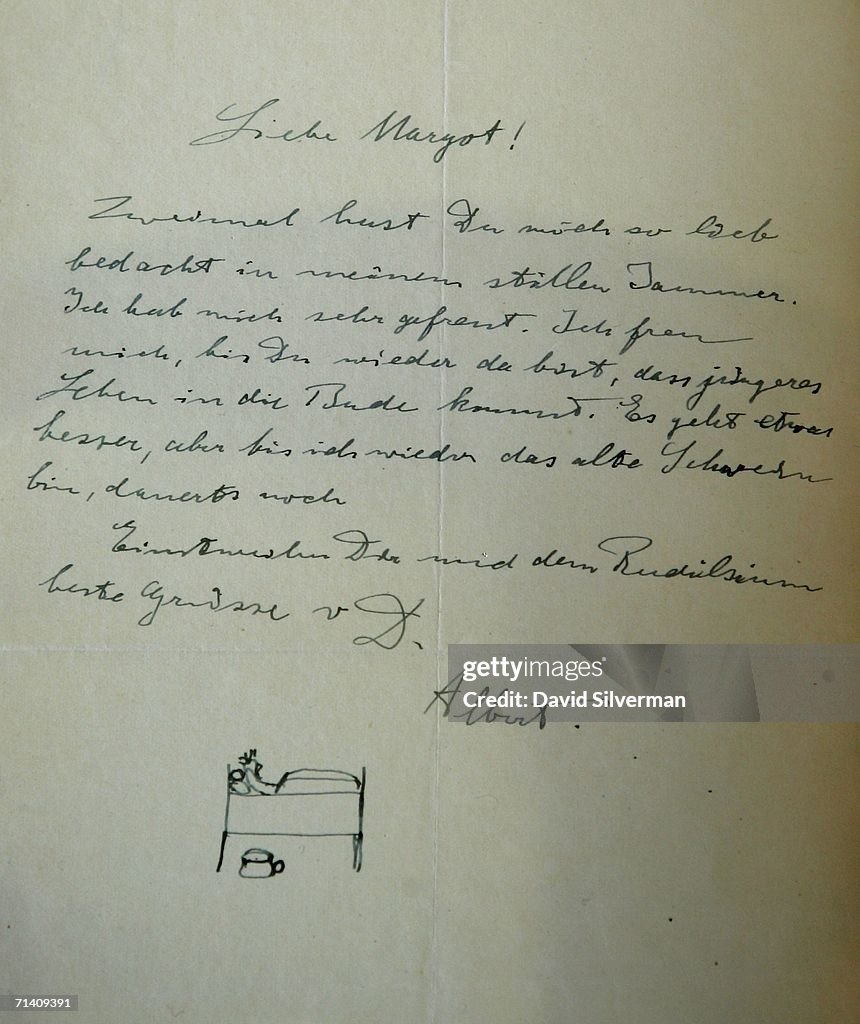 Liebe Margot!
Zweimal hast Du mich so lieb
bedacht in meinem stillen Jammer.
Ich hab mich sehr gefreut. Ich freu
mich, bis Du wieder da bist, dass jüngeres
Leben in die Bude kommt. Es geht etwas
besser, aber bis ich wieder das alte Schwein
bin, dauerts noch
Einstweilen Dir und dem
beste Grüsse v D.
Albert.
gettyimages
Credit: David Silverman
71409391